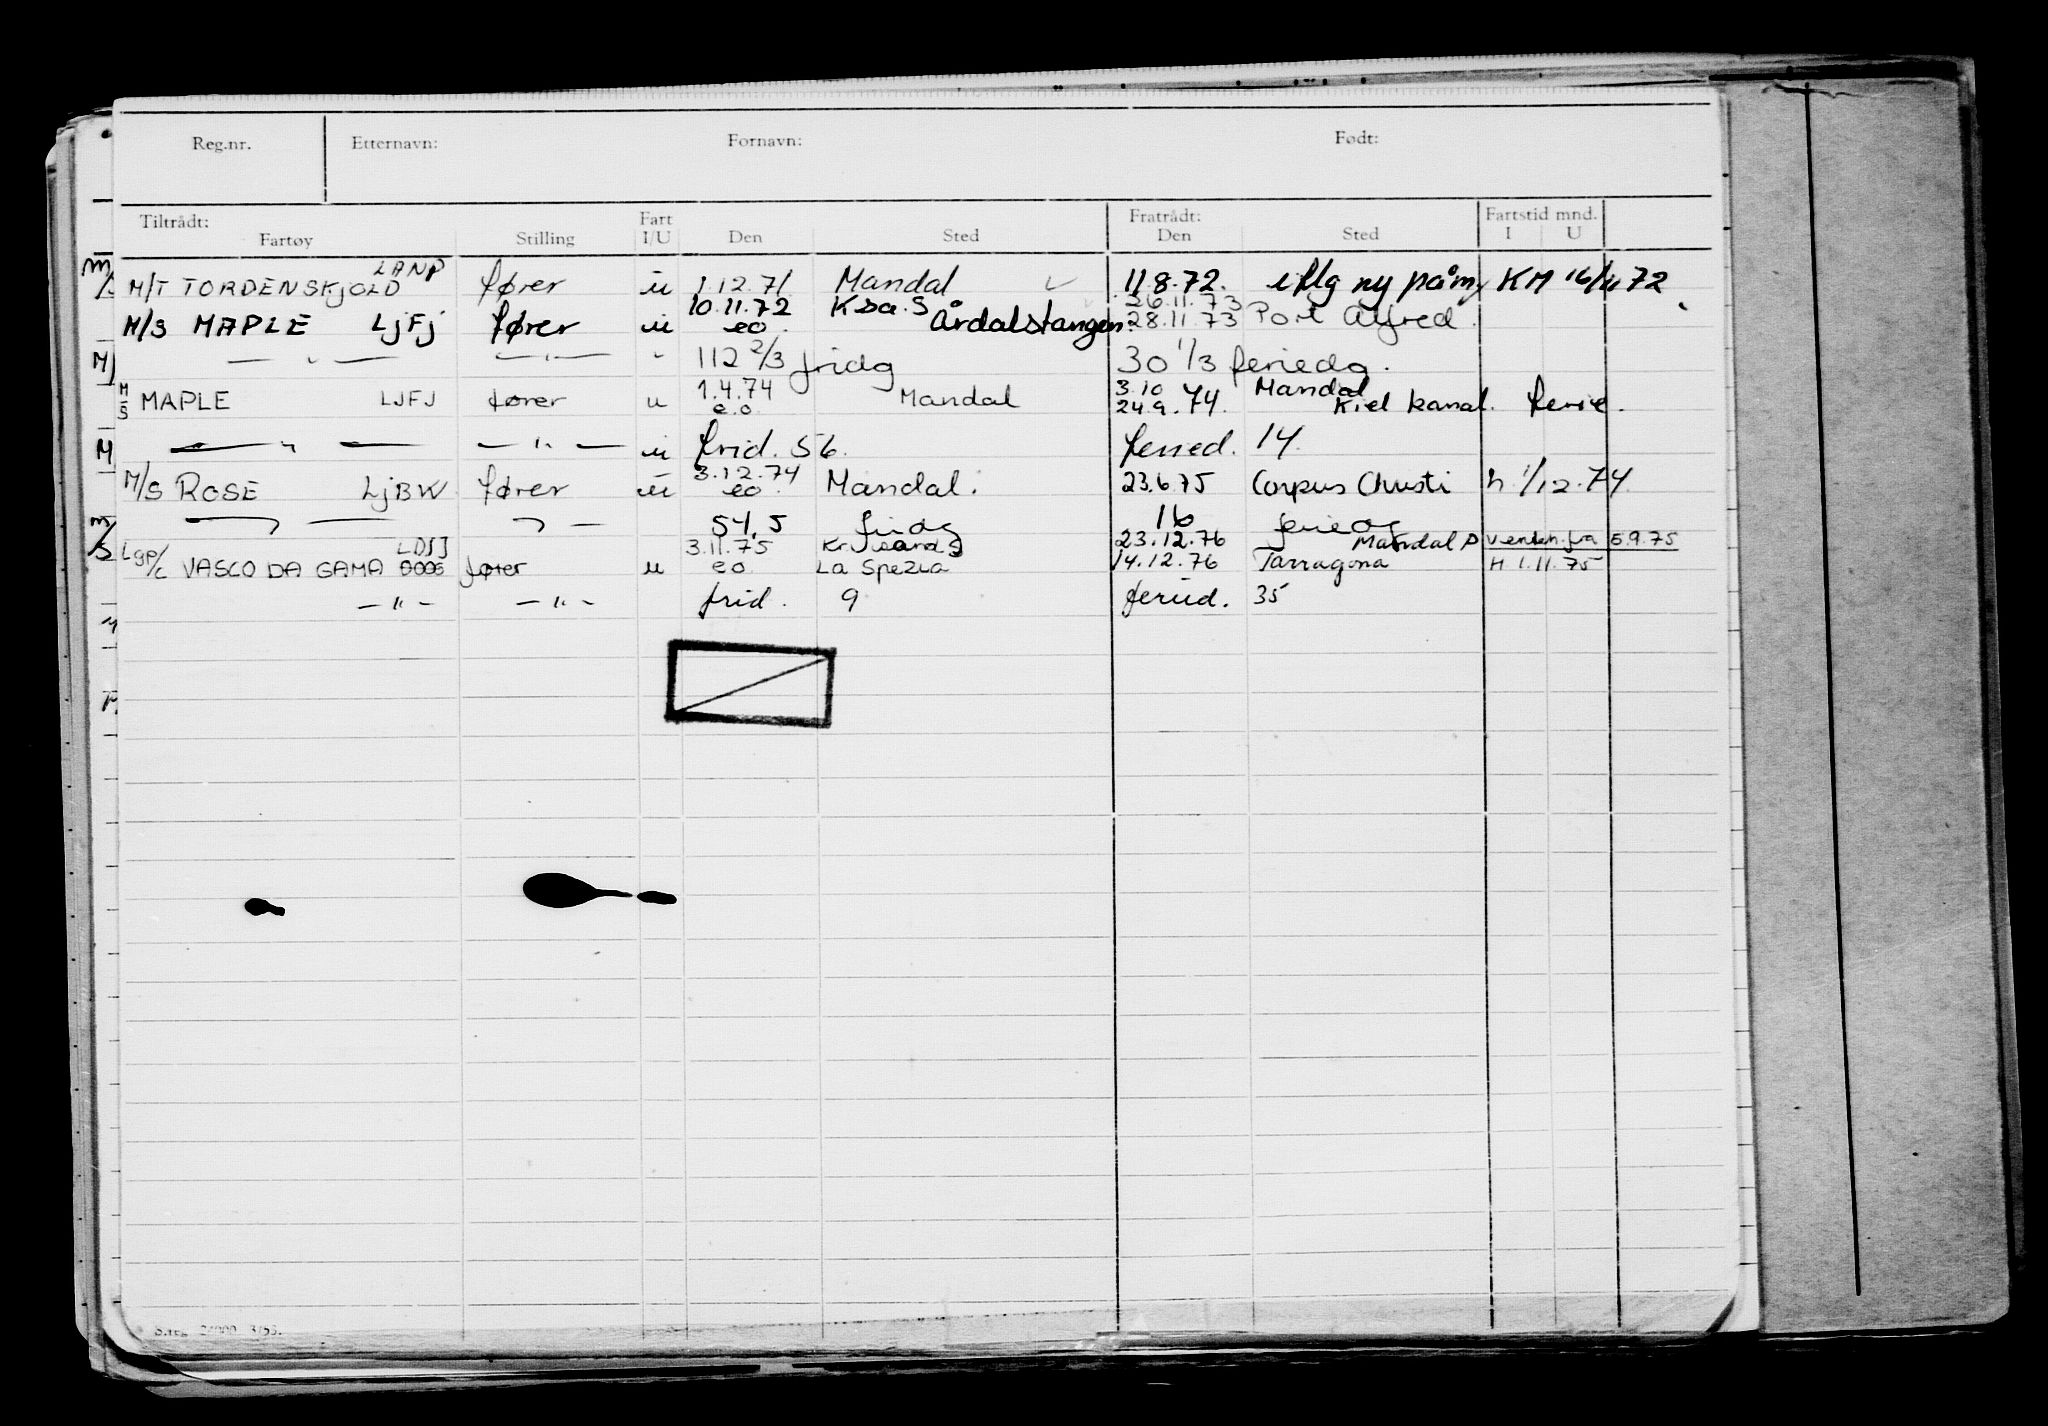 Reg.nr. Etternavn: Fornavn: Født:
Tiltrådt: Fratrådt: Fartstid mnd.
Fartøy Stilling Fart I/U Den Sted Den Sted I U
M/T TORDENSKJOLD LANP fører u 1.12.71 Mandal 11.8.72. iflg ny påm KM 16/11 72
10.11.72 Ksa. S 26.11.73
M/S MAPLE LJFJ fører u eo. Årdalstangen 28.11.73 Port Alfred.
— " — — " — " 112 2/3 fridg 30 1/3 feriedg.
1.4.74 3.10 Mandal
M/S MAPLE LJFJ fører u e.o. Mandal 24.9.74. Kiel kanal. ferie.
— " — — " — u frid. 56. feried. 14
3.12.74
M/S ROSE LJBW fører u eo. Mandal. 23.6.75 Corpus Christi h 1/12.74
54,5 fridg 16 feriedg
LDSJ 3.11.75 Kr.sand S 23.12.76 Mandal P venteh. fra 5.9.75
Lgp/c VASCO DA GAMA fører u eo. La Spezia 14.12.76 Tarragona H 1.11.75
— " — — " — frid. 9 feried. 35
S.reg 3/53.